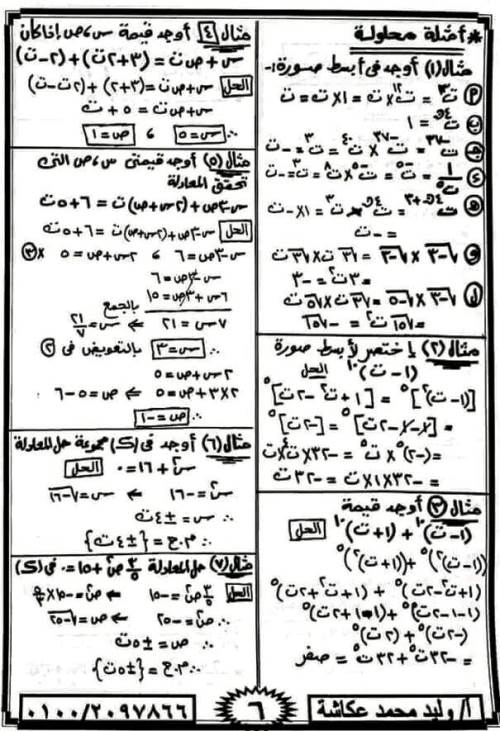 * أمثلة محلولة
مثال (١) أوجد فى أبسط صورة :-
(P) ت١٣ = ت١٢ × ت = ١ × ت = ت
(ب) ت٤ن = ١
(جـ) ت-٣٧ = ت-٣٧ × ت٤٠ = ت٣ = -ت
(د) ١/ت٥ = ت-٥ = ت-٥ × ت٨ = ت٣ = -ت
(هـ) ت٤ن+٣ = ت٤ن × ت٣ = ١ × -ت
= -ت
(و) √-٣ × √-٣ = √٣ ت × √٣ ت
= ٣ت٢ = -٣
(ز) √-٣ × √-٥ = √٣ ت × √٥ ت
= √١٥ ت٢ = -√١٥
مثال (٢) إختصر لأبسط صورة
(١-ت)١٠ الحل
[(١-ت)٢]٥ = [١+ت٢-٢ت]٥
= [١-١-٢ت]٥ = [-٢ت]٥
= (-٢)٥ × ت٥ = -٣٢ × ت٤ × ت
= -٣٢ × ١ × ت = -٣٢ ت
مثال (٣) أوجد قيمة
(١-ت)١٠ + (١+ت)١٠ الحل
((١-ت)٢)٥ + ((١+ت)٢)٥
(١+ت٢-٢ت)٥ + (١+ت٢+٢ت)٥
(١-١-٢ت)٥ + (١-١+٢ت)٥
(-٢ت)٥ + (٢ت)٥
= -٣٢ت٥ + ٣٢ت٥ = صفر
مثال (٤) أوجد قيمة س ، ص إذا كان
س + ص ت = (٣+٢ت) + (٢-ت)
الحل س + ص ت = (٣+٢) + (٢ت-ت)
س + ص ت = ٥ + ت
∴ س = ٥ ، ص = ١
مثال (٥) أوجد قيمتى س ، ص التى
تحقق المعادلة
س-٣ص + (٢س+ص)ت = ٦+٥ت
الحل س-٣ص + (٢س+ص)ت = ٦+٥ت
س-٣ص = ٦ ، ٢س+ص = ٥ ×(٣)
س-٣ص = ٦
٦س+٣ص = ١٥ بالجمع
٧س = ٢١ ⇐ س = ٢١/٧
∴ س = ٣ بالتعويض فى (٢)
٢س+ص = ٥
٢×٣+ص = ٥ ⇐ ص = ٥-٦
∴ ص = -١
مثال (٦) أوجد فى (ك) مجموعة حل المعادلة
س٢ + ١٦ = ٠ الحل
س٢ = -١٦ ⇐ س = √-١٦
∴ س = ±٤ت
∴ م.ح = {±٤ت}
مثال (٧) حل المعادلة ٣/٥ ص٢ + ١٥ = ٠ فى (ك)
الحل ٣/٥ ص٢ = -١٥ ⇐ ص٢ = -١٥ × ٥/٣
ص٢ = -٢٥ ⇐ ص = √-٢٥
∴ ص = ±٥ت
∴ م.ح = {±٥ت}
أ/ وليد محمد عكاشة
٦
٠١٠٠/٢٠٩٧٨٦٦